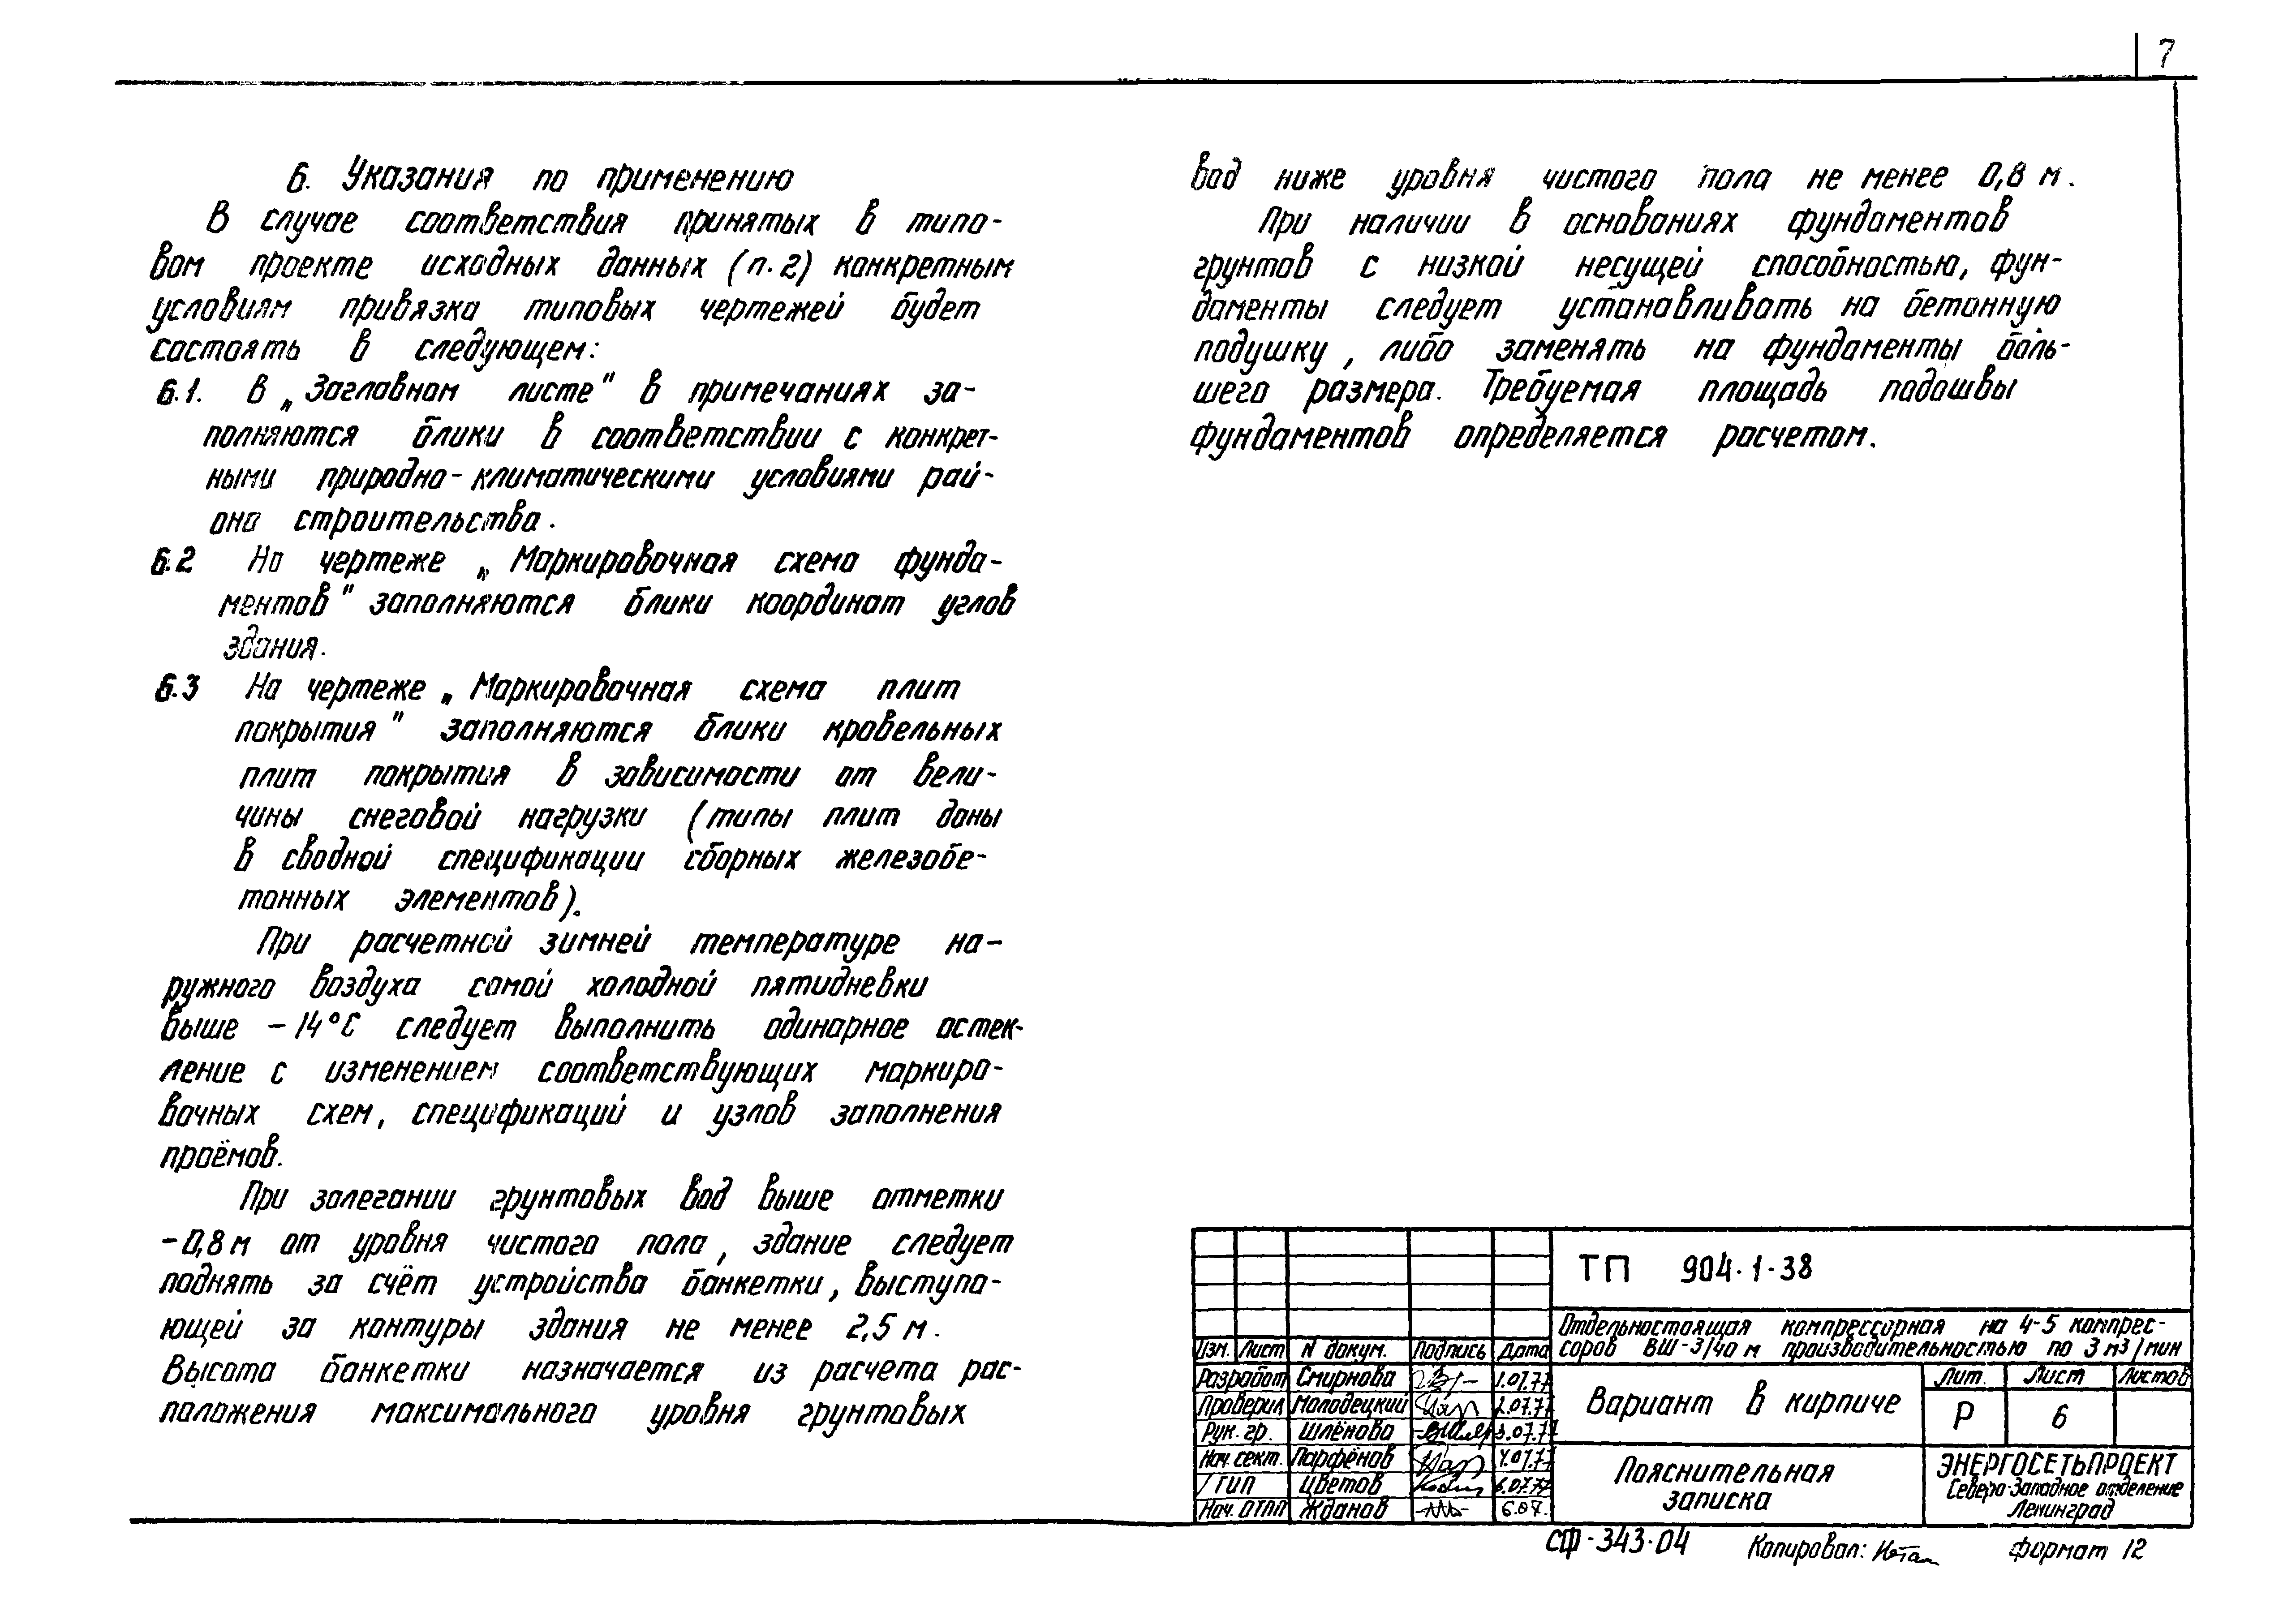 7
6. Указания по применению
В случае соответствия принятых в типо-
вом проекте исходных данных (п.2) конкретным
условиям привязка типовых чертежей будет
состоять в следующем:
6.1. В „Заглавном листе" в примечаниях за-
полняются блики в соответствии с конкрет-
ными природно-климатическими условиями рай-
она строительства.
6.2 На чертеже „Маркировочная схема фунда-
ментов" заполняются блики координат углов
здания.
6.3 На чертеже „Маркировочная схема плит
покрытия" заполняются блики кровельных
плит покрытия в зависимости от вели-
чины снеговой нагрузки (типы плит даны
в сводной спецификации сборных железобе-
тонных элементов).
При расчетной зимней температуре на-
ружного воздуха самой холодной пятидневки
выше -14°С следует выполнить одинарное остек-
ление с изменением соответствующих маркиро-
вочных схем, спецификаций и узлов заполнения
проёмов.
При залегании грунтовых вод выше отметки
-0,8 м от уровня чистого пола, здание следует
поднять за счёт устройства банкетки, выступа-
ющей за контуры здания не менее 2,5 м.
Высота банкетки назначается из расчета рас-
положения максимального уровня грунтовых
вод ниже уровня чистого пола не менее 0,8 м.
При наличии в основаниях фундаментов
грунтов с низкой несущей способностью, фун-
даменты следует устанавливать на бетонную
подушку, либо заменять на фундаменты боль-
шего размера. Требуемая площадь подошвы
фундаментов определяется расчетом.
ТП 904-1-38
Отдельностоящая компрессорная на 4-5 компрес-
соров ВШ-3/40 м производительностью по 3 м³/мин
Изм. Лист N докум. Подпись Дата
Разработ Смирнова 1.07.77
Проверил Молодецкий 2.07.77
Рук. гр. Шлёнова 3.07.77
Нач. сект. Парфёнов 4.07.77
ГИП Цветов 6.07.77
Нач. ОТПП Жданов 6.07.
Вариант в кирпиче
Лит. Лист Листов
Р 6
Пояснительная
записка
ЭНЕРГОСЕТЬПРОЕКТ
Северо-Западное отделение
Ленинград
СФ-343-04 Копировал: формат 12